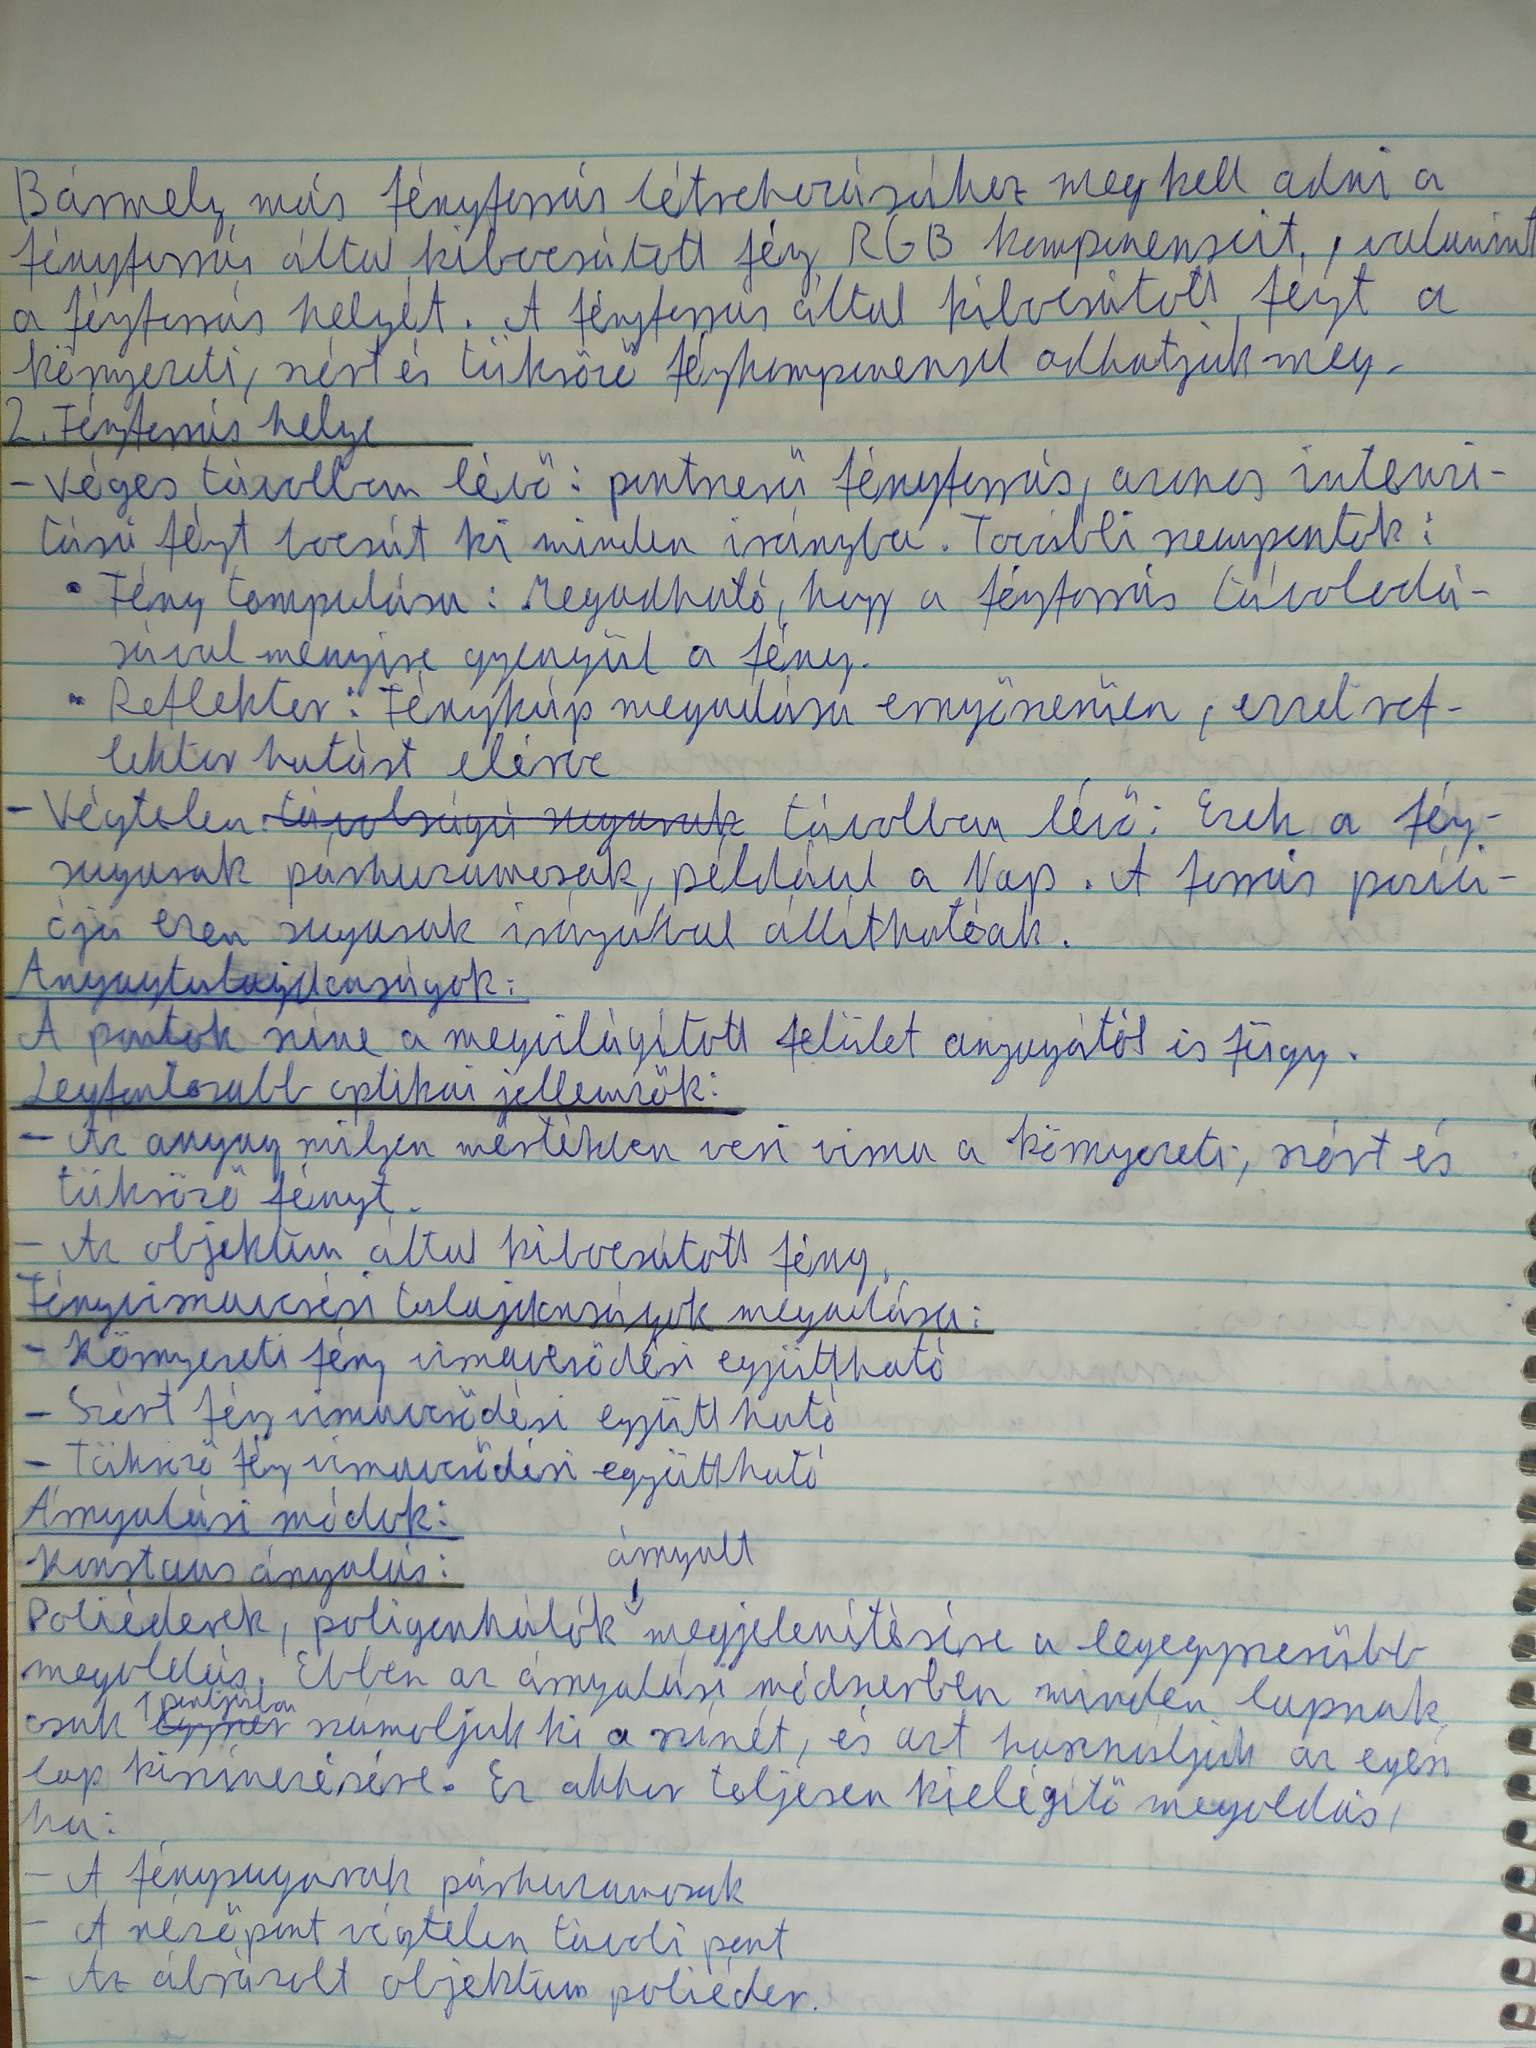 Bármely más fényforrás létrehozásához meg kell adni a
fényforrás által kibocsátott fény RGB komponenseit, valamint
a fényforrás helyét. A fényforrás által kibocsátott fényt a
környezeti, szórt és tükröző fénykomponenssel adhatjuk meg.
2. Fényforrás helye
- Véges távolban lévő: pontszerű fényforrás, azonos intenzi-
tású fényt bocsát ki minden irányba. További szempontok:
• Fény tompulása: Megadható, hogy a fényforrás távolodá-
sával menyire gyengül a fény.
• Reflektor: Fénykúp megadása ernyőszerűen, ezzel ref-
lektor hatást elérve
- Végtelen távolságú sugarak távolban lévő: Ezek a fény-
sugarak párhuzamosak, például a Nap. A forrás pozíci-
ója ezen sugarak irányával állíthatóak.
Anyagtulajdonságok:
A pontok színe a megvilágított felület anyagától is függ.
Legfontosabb optikai jellemzők:
- Az anyag milyen mértékben veri vissza a környezeti, szórt és
tükröző fényt.
- Az objektum által kibocsátott fény.
Fényvisszaverési tulajdonságok megadása:
- Környezeti fény visszaverődési együttható
- Szórt fény visszaverődési együttható
- Tükröző fény visszaverődési együttható
Árnyalási módok:
Konstans árnyalás:
árnyalt
Poliéderek, poligonhálók megjelenítésére a legegyszerűbb
megoldás. Ebben az árnyalási módszerben minden lapnak
1 pontjában
csak egyszer számoljuk ki a színét, és azt használjuk az egész
lap kiszínezésére. Ez akkor teljesen kielégítő megoldás,
ha:
- A fénysugarak párhuzamosak
- A nézőpont végtelen távoli pont
- Az ábrázolt objektum poliéder.